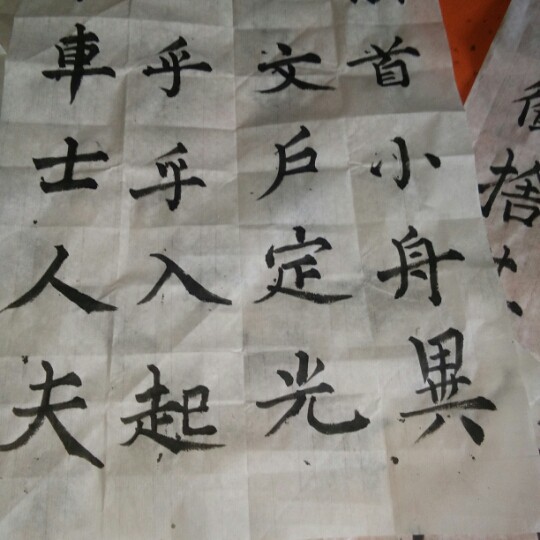 首小舟異
文戶定光
乎乎入起
車士人夫
捨